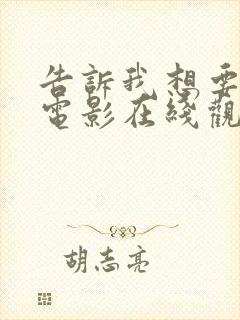 告訴我想要
電影在綫觀
胡志亮